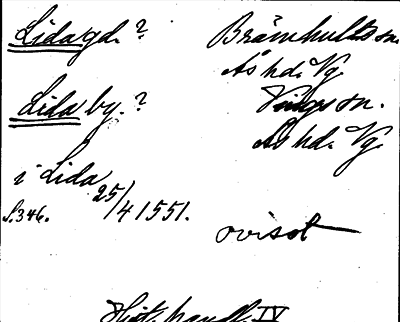 Lida gd. ? Brämhults sn.
Ås hd. Vg.
Lida by. ? Vings sn.
Ås hd. Vg.
i Lida
25/4 1551.
S. 346.
ovisst
Hist. handl. IV